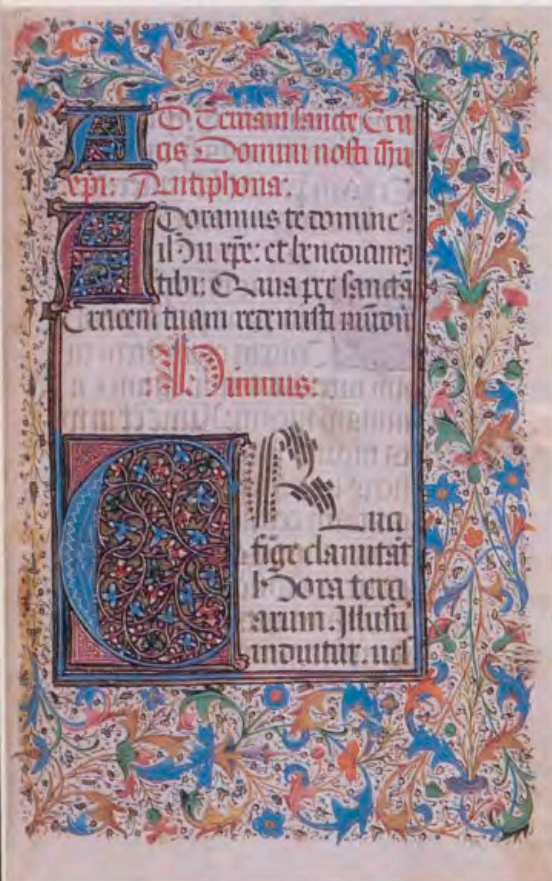 AD Terciam sancte Cru
cis Domini nostri ihu
xpi: Antiphona:
Adoramus te domine
ihu xpe: et benedicim9
tibi: Quia per sanctã
Crucem tuam redemisti mũdũ
Himnus:
CRuci
fige clamitãt
hora terci
arum. Illusu
induitur. ues